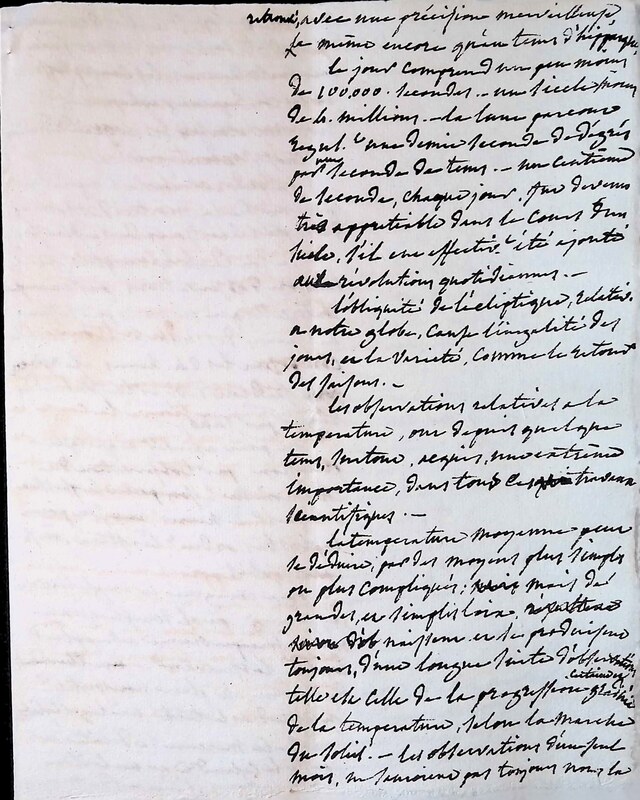 retrouvé, avec une précision merveilleuse
le même encore qu'au tems d'hipparque,
le jour comprend un peu moins
de 100,000 secondes. - un siècle moins
de 4. millions. - la lune parcourt
regul.t une demie seconde de dégrés
par seconde de tems. - un centième
de seconde, chaque jour, fut devenu
très appretiable dans le cours d'un
siècle, s'il eut effectiv.t été ajouté
aux révolutions quotidiennes. -
l'obliquité de l'écliptique, relativ.
a notre globe, cause l'inégalité des
jours, et la varieté, comme le retour
des saisons. -
les observations relatives a la
temperature, ont depuis quelque
tems, surtout, acquis, une extrême
importance, dans tous les travaux
scientifiques. -
la temperature moyenne peut
se déduire, par des moyens plus simples
ou plus compliqués; mais de
grandes, et simples loix
naissent et se produisent
toujours, d'une longue suite d'observations
telle est celle de la progression certaine
de la temperature, selon la marche
du soleil. - les observations d'un seul
mois, ne sauroient pas toujours nous la